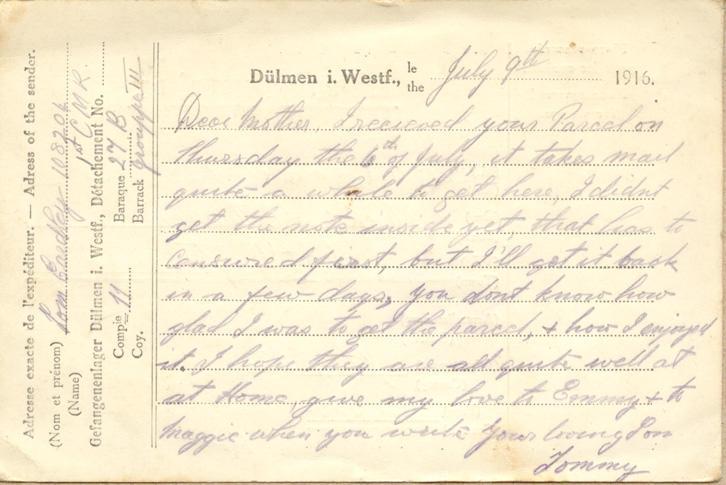 Dülmen i. Westf., le the July 9th 1916.
Dear Mother, I recieved your Parcel on
thursday the 6th of July, it takes mail
quite a while to get here, I didnt
get the note inside yet, that has to
censured first, but I'll get it back
in a few days, you dont know how
glad I was to get the parcel, + how I enjoyed
it. I hope they are all quite well at
at Home, give my love to Emmy + to
Maggie when you write Your loving Son
Tommy
Adresse exacte de l'expéditeur. — Adress of the sender.
(Nom et prénom) Tom 108206
(Name) 1st C.M.R.
Gefangenenlager Dülmen i. Westf., Détachement No.
Compie 11 Baraque 27 B
Coy. Barrack groupe III